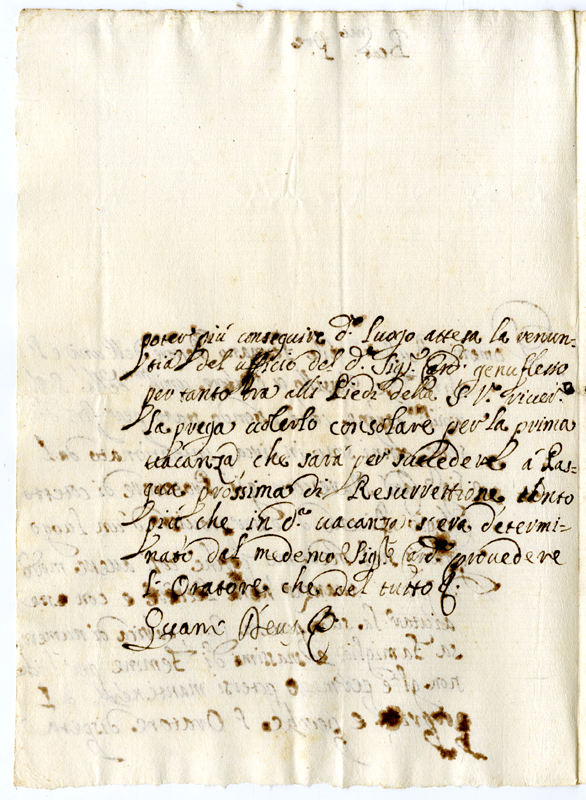 poter più conseguire d.º luogo attesa la renun-
tia del ufficio del d.º Sig.r Card. genuflesso
per tanto hà alli Piedi della S. V. river.
la prega volerlo consolare per la prima
vacanza che sarà per succedere à Pas-
qua prossima di Resurrettione tanto
più che in d.ª vacanza s'era determi-
nato dal medemo Sig.r Card. provedere
l'Oratore che del tutto &.
Quam Deus &